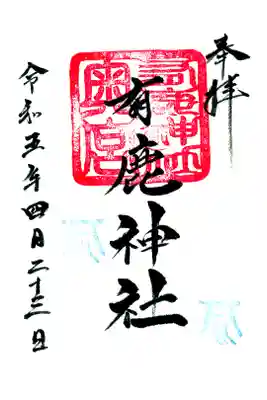 奉拝
有鹿神社
令和五年四月二十三日